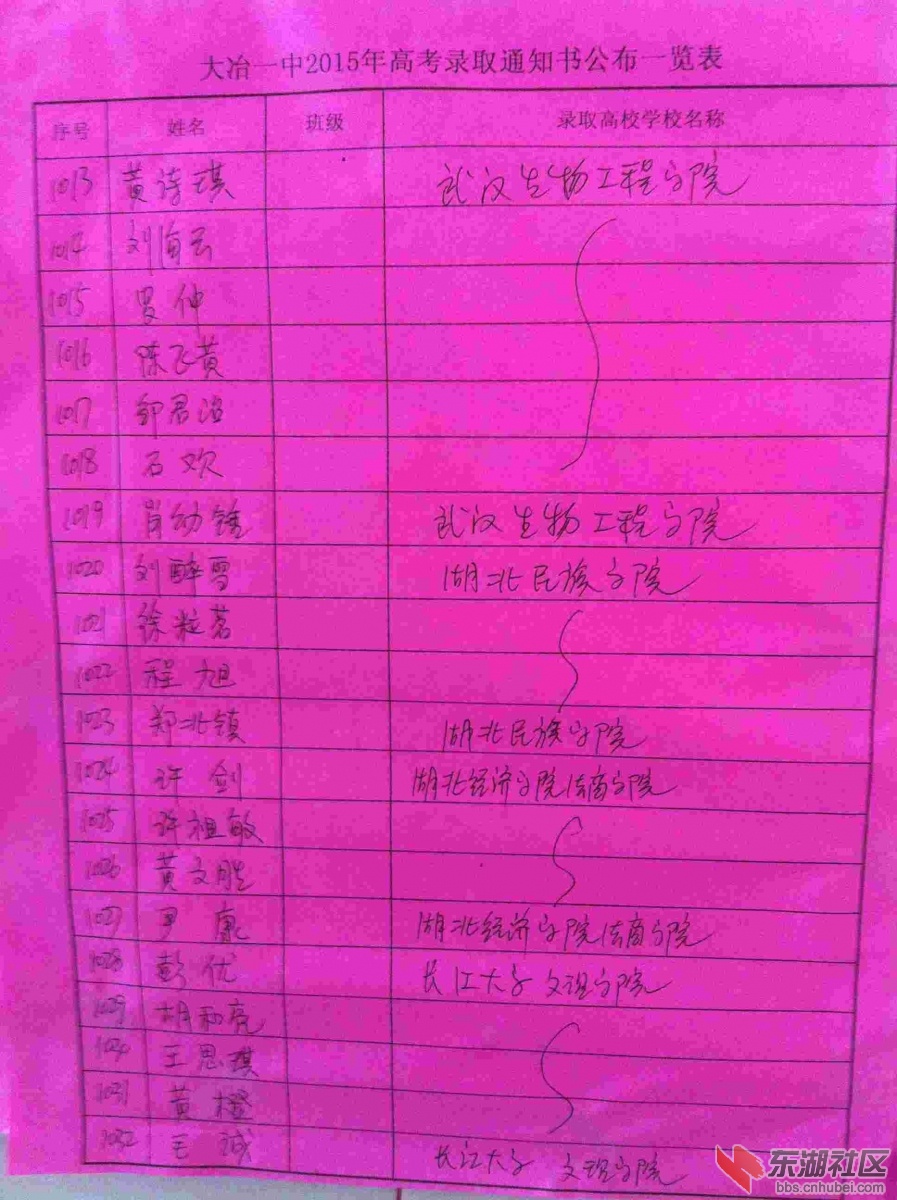 大冶一中2015年高考录取通知书公布一览表
序号 姓名 班级 录取高校学校名称
1013 黄诗琪 武汉生物工程学院
1014 刘海云
1015 罗仲
1016 陈飞黄
1017 邹君
1018 石欢
1019 肖幼锤 武汉生物工程学院
1020 刘醉雪 湖北民族学院
1021 徐粒茗
1022 程旭
1023 郑北镇 湖北民族学院
1024 许剑 湖北经济学院法商学院
1025 许祖敏
1026 黄文胜
1027 尹康 湖北经济学院法商学院
1028 彭优 长江大学文理学院
1029 胡和亮
1030 王思琪
1031 黄橙
1032 王诚 长江大学文理学院
东湖社区
bbs.cnhubei.com